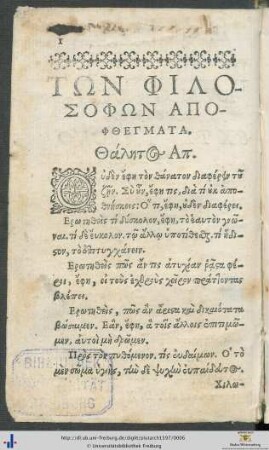 ΤΩΝ ΦΙΛΟ-
ΣΟΦΩΝ ΑΠΟ-
ΦΘΕΓΜΑΤΑ.
Θάλητος Απ.
Οὐδὲν ἔφη τὸν θάνατον διαφέρειν τοῦ
ζῆν. Σὺ οὖν, ἔφη τις, διὰ τί οὐκ ἀπο-
θνήσκεις; Ὅτι, ἔφη, οὐδὲν διαφέρει.
Ἐρωτηθεὶς τί δύσκολον, ἔφη, τὸ ἑαυτὸν γνῶ-
ναι. τί δὲ εὔκολον. τῷ ἄλλῳ ὑποτίθεσθαι. τί ἥδι-
στον, τὸ ἐπιτυγχάνειν.
Ἐρωτηθεὶς πῶς ἄν τις ἀτυχίαν ῥᾷστα φέ-
ροι, ἔφη, εἰ τοὺς ἐχθροὺς χεῖρον πράττοντας
βλέποι.
Ἐρωτηθεὶς, πῶς ἂν ἄριστα καὶ δικαιότατα
βιώσαιμεν. Ἐὰν, ἔφη, ἃ τοῖς ἄλλοις ἐπιτιμῶ-
μεν, αὐτοὶ μὴ δρῶμεν.
Πρὸς τὸν πυθόμενον, τίς εὐδαίμων. Ὁ τὸ
μὲν σῶμα ὑγιὴς, τὴν δὲ ψυχὴν εὐπαίδευτος.
Χίλω-
http://dl.ub.uni-freiburg.de/diglit/plutarch1597/0006
© Universitätsbibliothek Freiburg